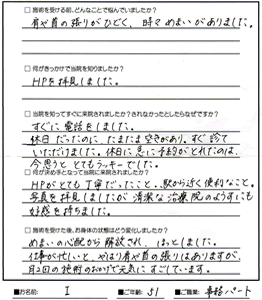 □ 施術を受ける前、どんなことで悩んでいましたか?
肩や首の張りがひどく、時々めまいがありました。
□ 何がきっかけで当院を知りましたか?
HPを拝見しました。
□ 当院を知ってすぐに来院されましたか?されなかったとしたらなぜですか?
すぐに電話をしました。
休日だったのに、たまたま空きがあり、すぐ診て
いただけました。休日に急に予約がとれたのは、
今思うと とてもラッキーでした。
□ 何が決め手となって当院に来院されましたか?
HPがとても丁寧だったこと。駅から近く便利なこと。
写真を拝見しましたが 清潔な治療院のようすにも
好感を持ちました。
□ 施術を受けた後、お身体の状態はどう変化しましたか?
めまいの心配から解放され、ほっとしました。
仕事が忙しいと、やはり肩や首の張りはありますが、
月2回の施術のおかげで元気にすごしています。
■お名前: I ■ご年齢: 51 ■ご職業: 事務パート